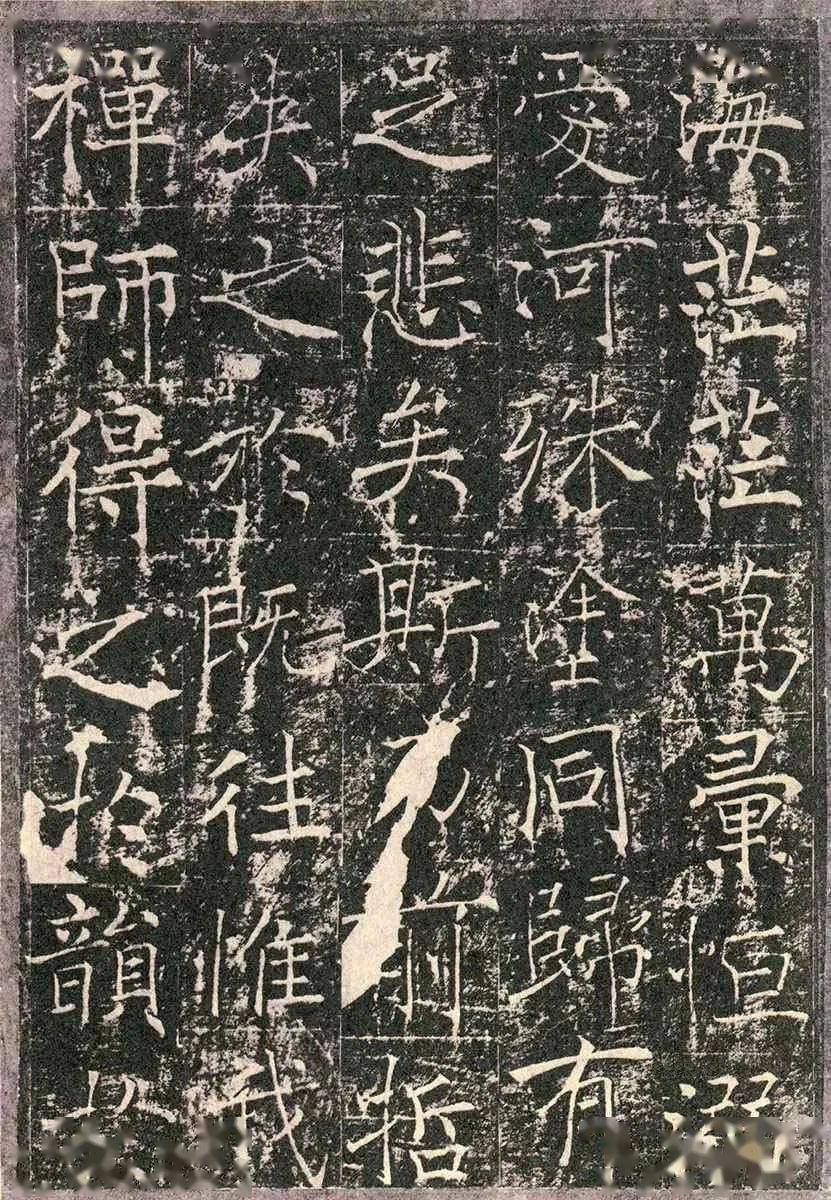 海茫茫萬彙恒溺
愛河殊塗同歸有
足悲矣斯乃前哲
失之於既往惟我
禪師得之於韻